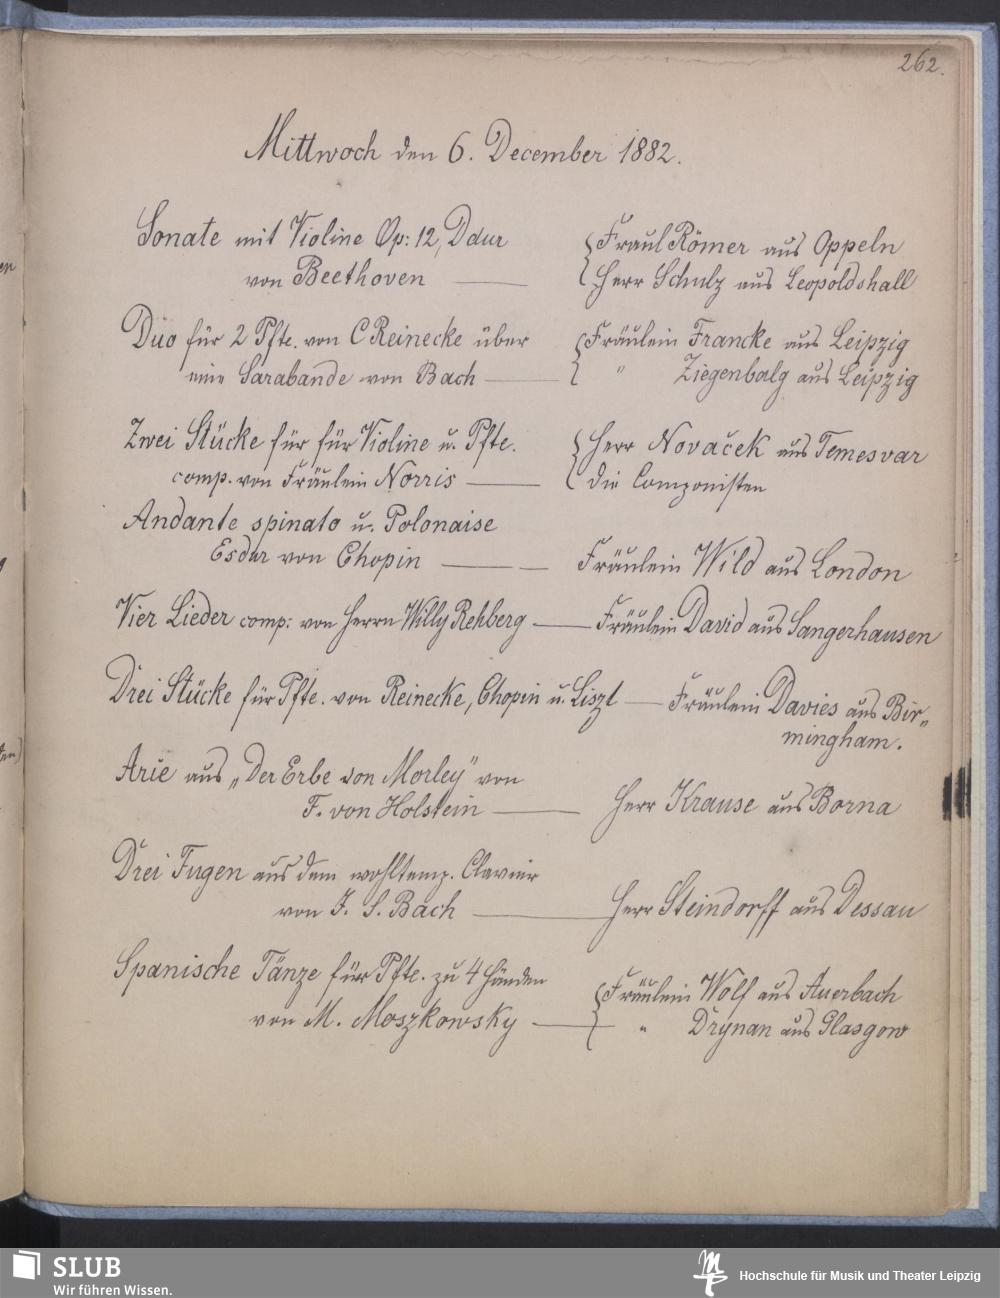 262.
Mittwoch den 6. December 1882.
Sonate mit Violine Op: 12, Ddur
von Beethoven ——
Fräul Römer aus Oppeln
Herr Schulz aus Leopoldshall
Duo für 2 Pfte. von C Reinecke über
eine Sarabande von Bach ——
Fräulein Francke aus Leipzig
" Ziegenbalg aus Leipzig
Zwei Stücke für für Violine u. Pfte.
comp. von Fräulein Norris ——
Herr Novaček aus Temesvar
die Componisten
Andante spinato u. Polonaise
Esdur von Chopin —— Fräulein Wild aus London
Vier Lieder comp: von Herrn Willy Rehberg —— Fräulein David aus Sangerhausen
Drei Stücke für Pfte. von Reinecke, Chopin u. Liszt — Fräulein Davies aus Bir„
mingham.
Arie aus „Der Erbe von Morley" von
F. von Holstein —— Herr Krause aus Borna
Drei Fugen aus dem wohltemp. Clavier
von J. S. Bach —— Herr Steindorff aus Dessau
Spanische Tänze für Pfte. zu 4 Händen
von M. Moszkowsky ——
Fräulein Wolf aus Auerbach
" Drynan aus Glasgow
SLUB
Wir führen Wissen.
Hochschule für Musik und Theater Leipzig